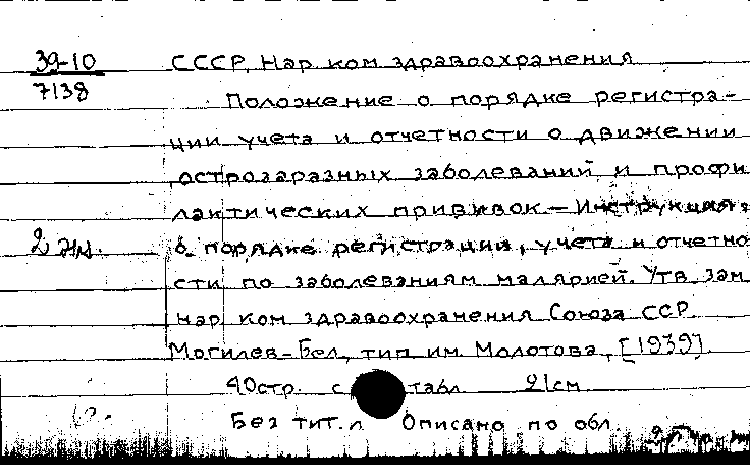 39-10 СССР. Нар ком здравоохранения
7138
Положение о порядке регистра-
ции учета и отчетности о движении
острозаразных заболеваний и профи
лактических прививок – Инструкция
2 эк. о порядке регистрации, учета и отчетно
сти по заболеваниям малярией. Утв. зам
нар ком здравоохранения Союза ССР.
Могилев-Бел, тип им Молотова, [1939].
40стр. с табл 21см
Без тит. л Описано по обл.